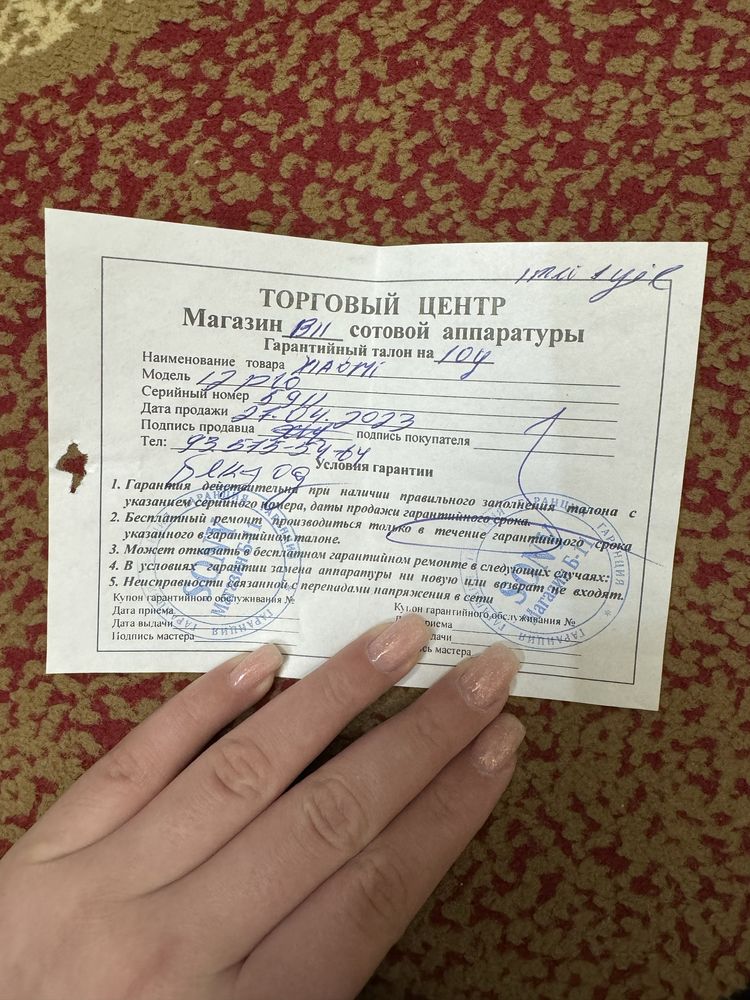 ТОРГОВЫЙ ЦЕНТР
Магазин В11 сотовой аппаратуры
Гарантийный талон на 10у
Наименование товара XIAOMI
Модель 12 pro
Серийный номер 5911
Дата продажи 27.04.2023
Подпись продавца подпись покупателя
Тел: 93 575-54-64
Условия гарантии
1. Гарантия действительна при наличии правильного заполнения талона с
указанием серийного номера, даты продажи гарантийного срока.
2. Бесплатный ремонт производиться только в течение гарантийного срока
указанного в гарантийном талоне.
3. Может отказать в бесплатном гарантийном ремонте в следующих случаях:
4. В условиях гарантии замена аппаратуры ни новую или возврат не входят.
5. Неисправности связанной с перепадами напряжения в сети
Купон гарантийного обслуживания № Купон гарантийного обслуживания №
Дата приема приема
Дата выдачи дачи
Подпись мастера мастера
ГАРАНЦИЯ ГАРАНЦИЯ
SONY SONY
Магазин Магазин Б-11